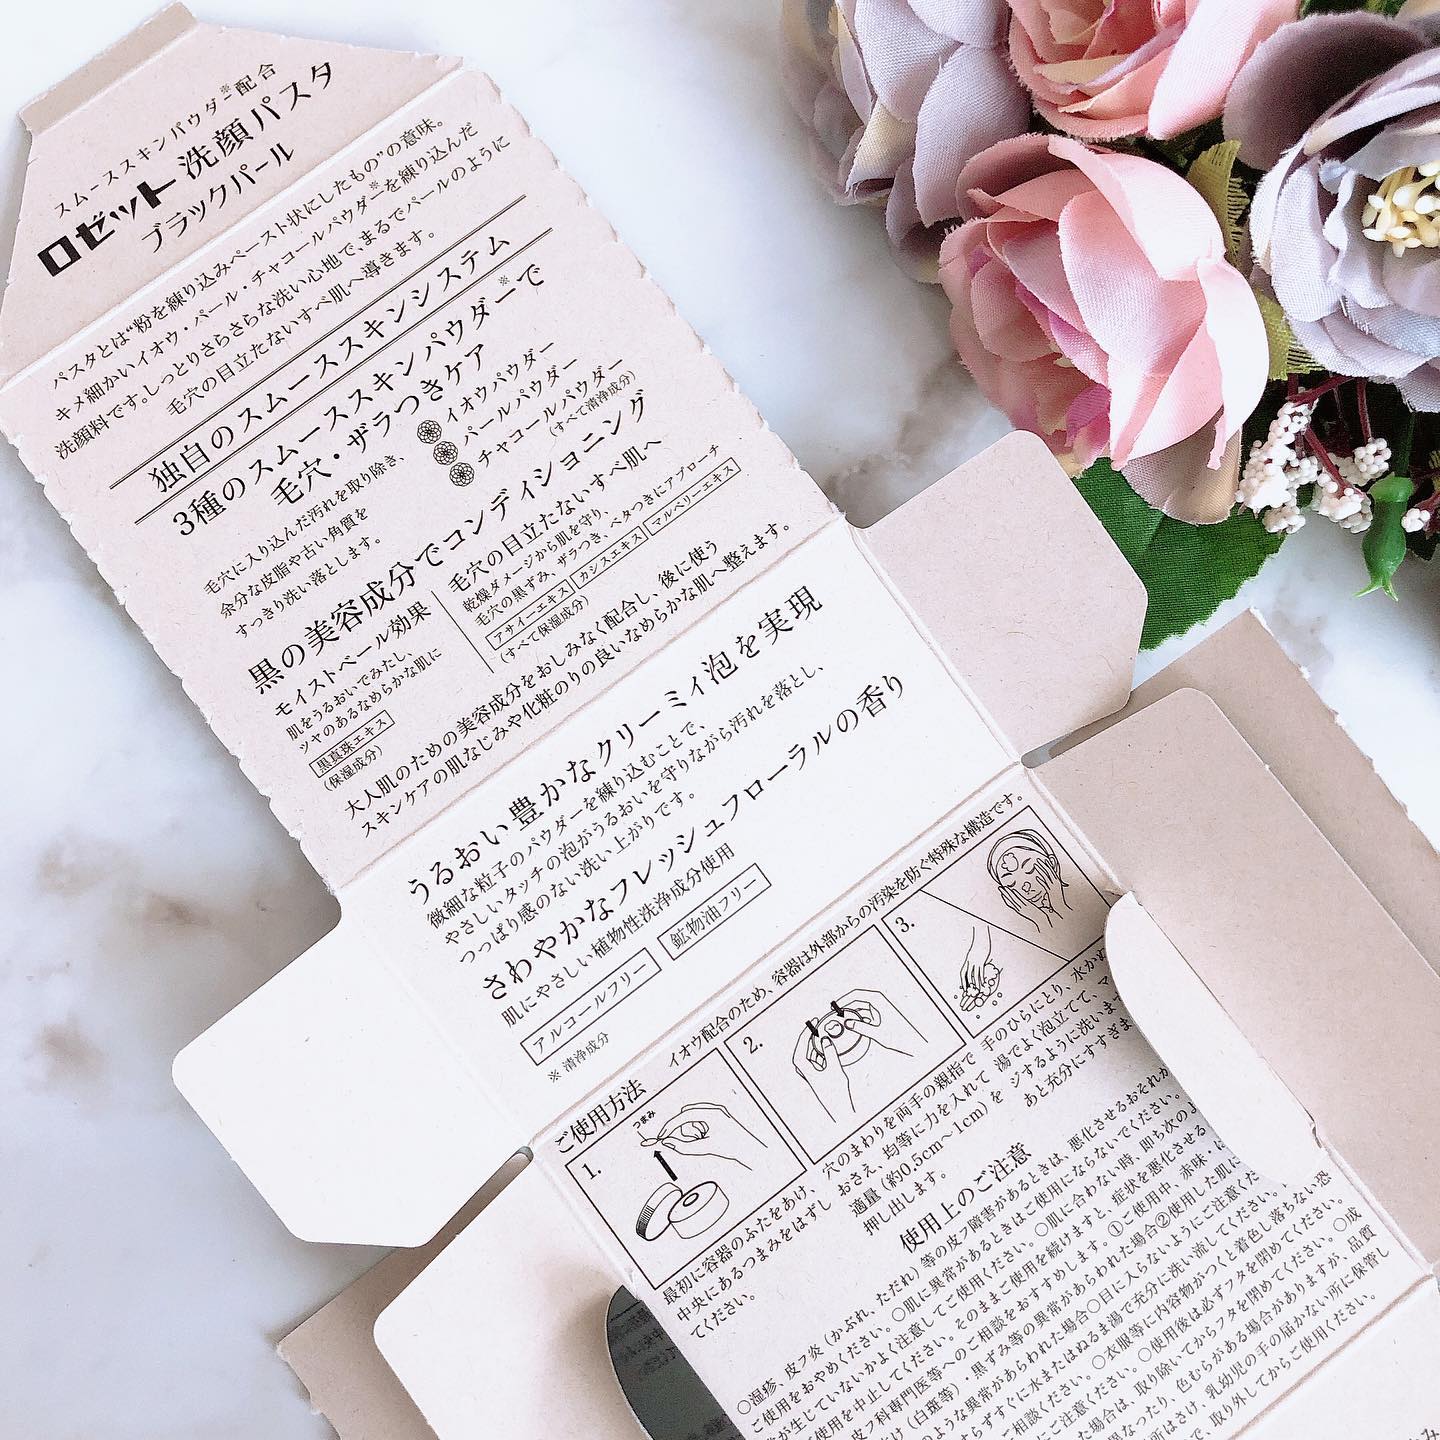 スムーススキンパウダー※配合
ロゼット洗顔パスタ
ブラックパール
パスタとは“粉を練り込みペースト状にしたもの”の意味。
キメ細かいイオウ・パール・チャコールパウダー※を練り込んだ
洗顔料です。しっとりさらさらな洗い心地で、まるでパールのように
毛穴の目立たないすべ肌へ導きます。
独自のスムーススキンシステム
3種のスムーススキンパウダー※で
毛穴・ザラつきケア
毛穴に入り込んだ汚れを取り除き、
余分な皮脂や古い角質を
すっきり洗い落とします。
イオウパウダー
パールパウダー
チャコールパウダー
(すべて清浄成分)
黒の美容成分でコンディショニング
モイストベール効果
肌をうるおいでみたし、
ツヤのあるなめらかな肌に
黒真珠エキス
(保湿成分)
毛穴の目立たないすべ肌へ
乾燥ダメージから肌を守り、
毛穴の黒ずみ、ザラつき、ベタつきにアプローチ
アサイーエキス カシスエキス マルベリーエキス
(すべて保湿成分)
大人肌のための美容成分をおしみなく配合し、後に使う
スキンケアの肌なじみや化粧のりの良いなめらかな肌へ整えます。
うるおい豊かなクリーミィ泡を実現
微細な粒子のパウダーを練り込むことで、
やさしいタッチの泡がうるおいを守りながら汚れを落とし、
つっぱり感のない洗い上がりです。
さわやかなフレッシュフローラルの香り
肌にやさしい植物性洗浄成分使用
アルコールフリー 鉱物油フリー
※ 清浄成分
ご使用方法 イオウ配合のため、容器は外部からの汚染を防ぐ特殊な構造です。
1.
つまみ
2.
3.
最初に容器のふたをあけ、
中央にあるつまみをはずし
てください。
穴のまわりを両手の親指で
おさえ、均等に力を入れて
適量(約0.5cm〜1cm)を
押し出します。
手のひらにとり、水かぬ
湯でよく泡立てて、マ
ジするように洗います
あと充分にすすぎま
使用上のご注意
○湿疹、皮フ炎(かぶれ、ただれ)等の皮フ障害があるときは、悪化させるおそれが
ご使用をおやめください。○肌に異常があるときはご使用にならないでください。
常が生じていないかよく注意してご使用ください。○肌に合わない時、即ち次のよ
使用を中止してください。そのままご使用を続けますと、症状を悪化させる
皮フ科専門医等へのご相談をおすすめします。①ご使用中、赤味・は
け(白斑等)・黒ずみ等の異常があらわれた場合②使用した肌に
のような異常があらわれた場合○目に入らないようにご注意くだ
らずすぐに水またはぬるま湯で充分に洗い流してください。
ご相談ください。○衣服等に内容物がつくと着色し落ちない恐
にご注意ください。○使用後は必ずフタを閉めてください。
た場合は、取り除いてからフタを閉めてください。○成
異なったり、色むらがある場合がありますが、品質
所はさけ、乳幼児の手の届かない所に保管し
で、取り外してからご使用ください。